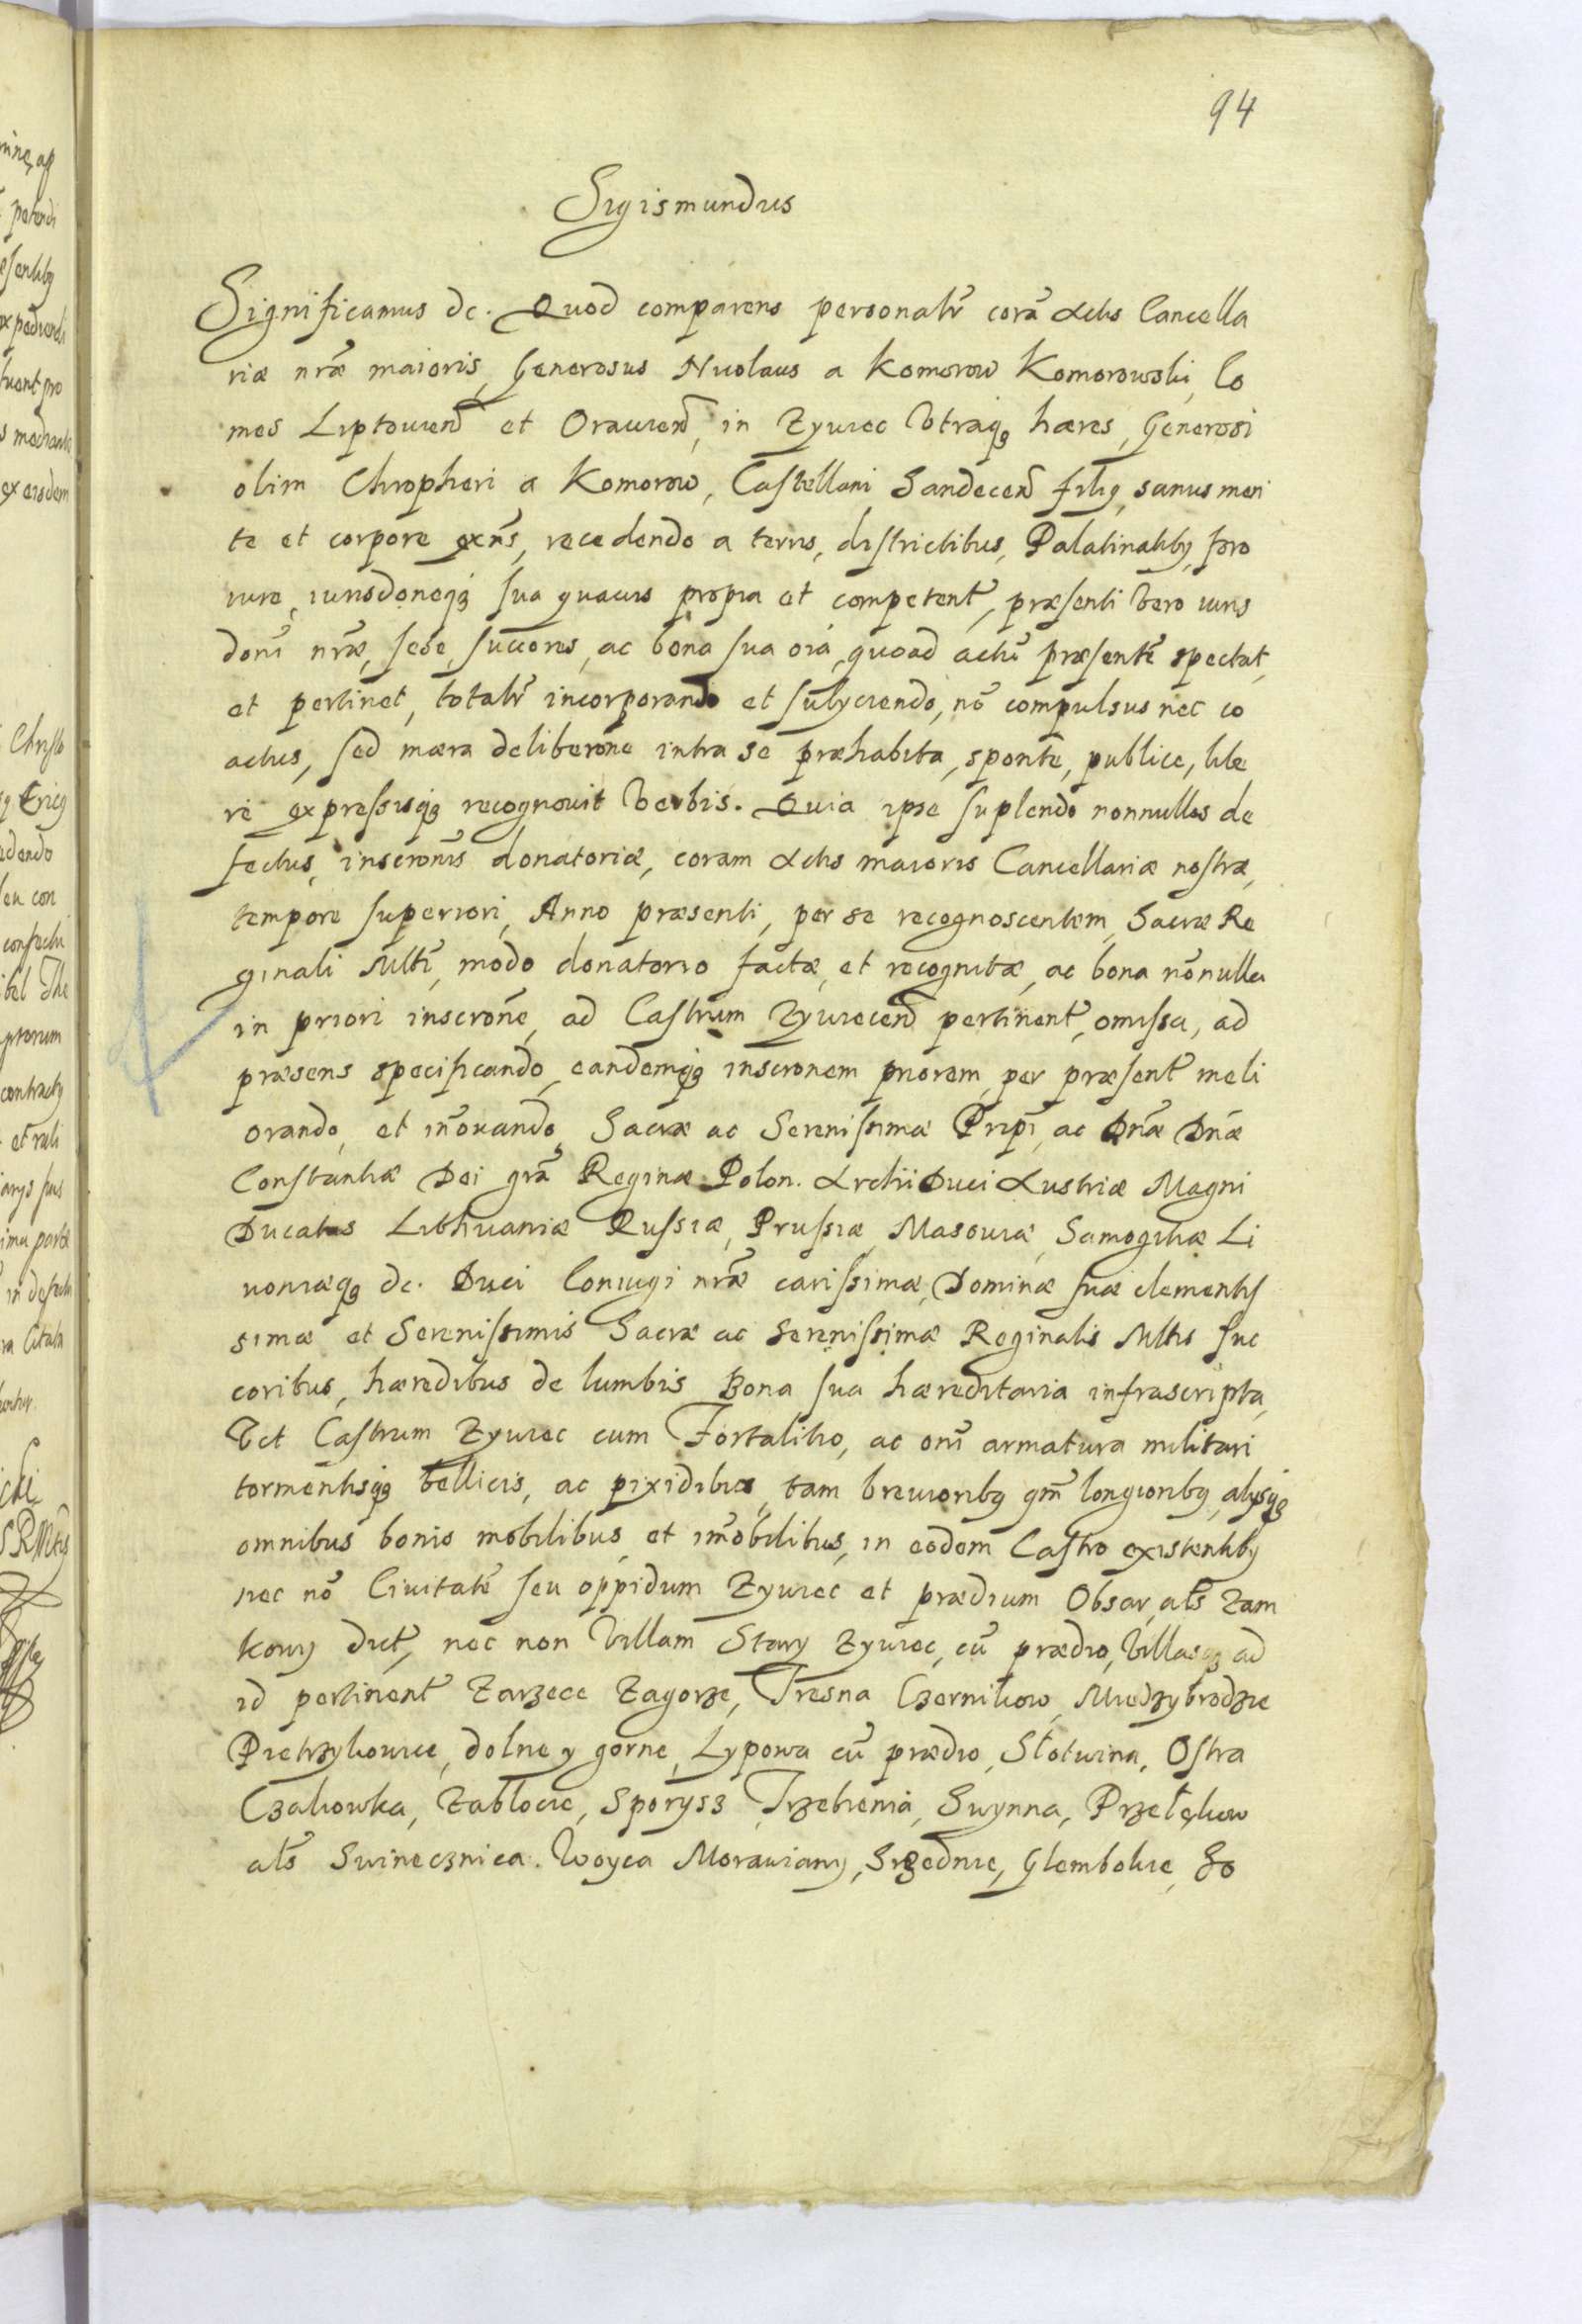 94
Sigismundus
Significamus &c. Quod comparens personalr̃ corã Actis Cancella
riæ nr̃æ maioris, Generosus Nicolaus a Komorow Komorowski, Co
mes Liptouien̄ et Orauien̄, in Zywiec Vtraq₃ hæres, Generosi
olim Chrõpheri a Komorow, Castellani Sandecen̄ filiꝯ, sanus men
te et corpore exñs, recedendo a terris, districtibus, Palatinatibꝯ, foro
iure, iurisdõneq₃ sua quauis propria et competent̃, præsenti vero iuris
doni nr̃æ, sese, succores, ac bona sua oĩa, quoad actũ præsentẽ spectat,
et pertinet, totalr̃ incorporando et subyciendo, nõ compulsus nec co
actus, sed mæra deliberõne intra se præhabita, sponte, publice, libe
re expressisq₃ recognouit verbis. Quia ipse suplendo nonnullos de
fectus, inscronĩs donatoriæ, coram Actis maioris Cancellariæ nostræ,
tempore superiori, Anno præsenti, per se recognoscentem, Sacræ Re
ginali Mtti, modo donatorio factæ, et recognitæ, ac bona nõnulla
in priori inscrõne, ad Castrum Zywiecen̄ pertinent̃, omissa, ad
præsens specificando, eandemq₃ inscronem priorem, per præsent̃ meli
orando, et iñouando, Sacræ ac Serenissimæ Prĩpi, ac Dñæ Dñæ
Constantiæ Dei grã Reginæ Polon. ArchiDuci Austriæ Magni
Ducatus Lithuaniæ Russiæ, Prussiæ, Masouiæ, Samogitiæ Li
uoniæq₃ &c. Duci Coniugi nr̃æ carissimæ, Dominæ suæ clementis
simæ et Serenissimis Sacræ ac Serenissimæ Reginalis Mttis suc
coribus, hæredibus de lumbis Bona sua hæreditaria infrascripta,
Vct Castrum Zywiec cum Fortalitio, ac oñi armatura militari
tormentisq₃ bellicis, ac pixidibus, tam breuioribꝯ qm̃ longioribꝯ, alysq₃
omnibus bonis mobilibus, et im̃obilibus, in eodem Castro existentibꝯ
nec nõ Ciuitatẽ seu oppidum Zywiec et prædium Obsar, als̃ Zam
kowy dict̃, nec non Villam Stary Zywiec, cũ prædio, Villasq₃ ad
id pertinent̃ Zarzece Zagorze, Tresna Czernikow, Miedzybrodzie
Pietrzykowice, dolne y gorne, Lypowa cũ prædio, Słotwina, Ostra
Czakowka, Zabłocie, Sporysz Trzebienia, Swynna, Przełękow
als̃ Swinecznica. Woyca Morawiany, Srzednie, Glembokie, So